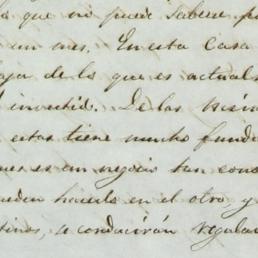 lo que no puede saberse p
un mes. En esta Casa
aja de lo que es actual
invertid. De las
estas tiene mucho funda
es es un negocio tan cono
eden hacerlo en el otro, y
tinos, se conducirán regula